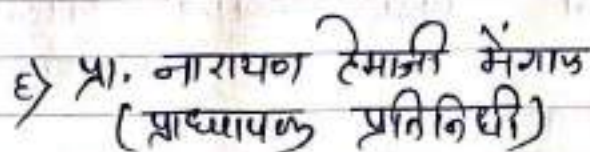 ६) प्रा. नारायण हेमाजी मेंगाळ
(प्राध्यापक प्रतिनिधी)